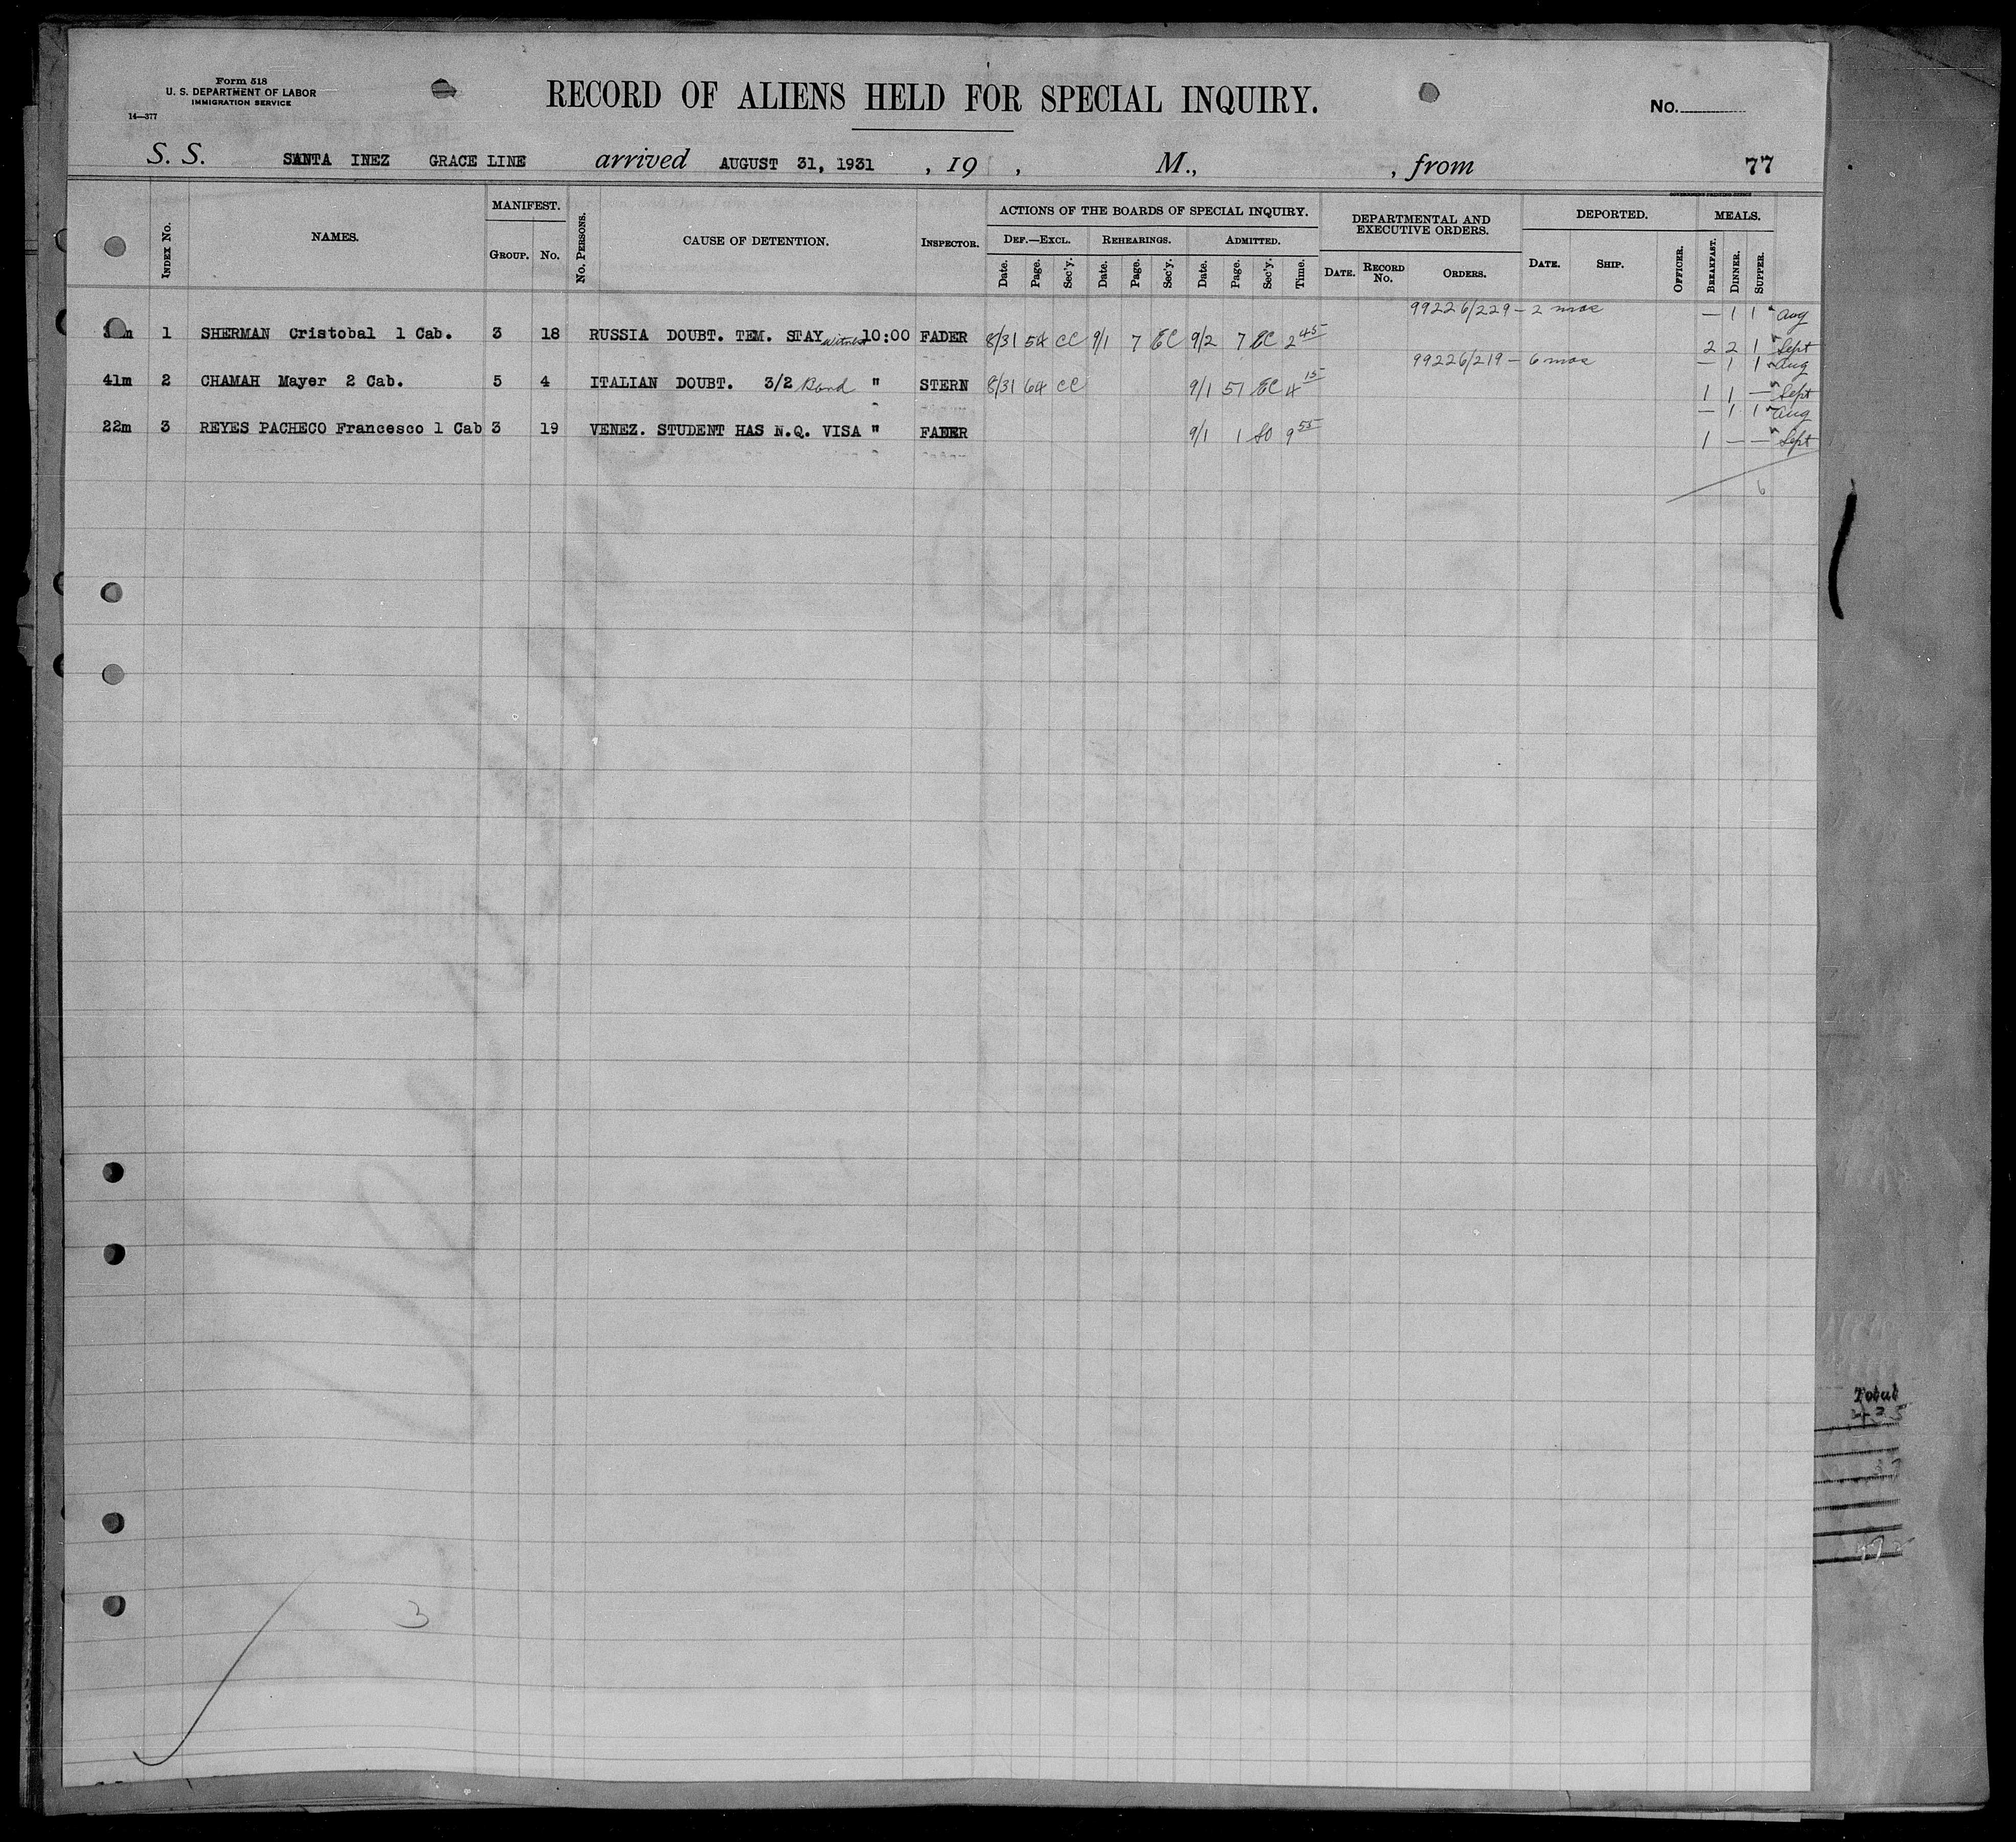 Form 518
U. S. DEPARTMENT OF LABOR
IMMIGRATION SERVICE
14—377
RECORD OF ALIENS HELD FOR SPECIAL INQUIRY.
No.
S. S. SANTA INEZ GRACE LINE arrived AUGUST 31, 1931 , 19 , M., , from 77
GOVERNMENT PRINTING OFFICE
INDEX No. NAMES. MANIFEST. GROUP. No. No. PERSONS. CAUSE OF DETENTION. INSPECTOR.
ACTIONS OF THE BOARDS OF SPECIAL INQUIRY.
DEF.—EXCL. REHEARINGS. ADMITTED.
Date. Page. Sec'y. Date. Page. Sec'y. Date. Page. Sec'y. Time.
DEPARTMENTAL AND
EXECUTIVE ORDERS.
DATE. RECORD No. ORDERS.
DEPORTED.
DATE. SHIP. OFFICER.
MEALS.
BREAKFAST. DINNER. SUPPER.
99226/229 – 2 mos — 1 1 " Aug
m 1 SHERMAN Cristobal 1 Cab. 3 18 RUSSIA DOUBT. TEM. STAY witness 10:00 FADER 8/31 54 CC 9/1 7 EC 9/2 7 EC 2 45 2 2 1 " Sept
99226/219 – 6 mos — 1 1 " Aug
41m 2 CHAMAH Mayer 2 Cab. 5 4 ITALIAN DOUBT. 3/2 Bond " STERN 8/31 64 CC 9/1 57 EC 4 15 1 1 — " Sept
— 1 1 " Aug
22m 3 REYES PACHECO Francesco 1 Cab 3 19 VENEZ. STUDENT HAS N.Q. VISA " FADER 9/1 1 SO 9 55 1 — — " Sept
6
Total
3